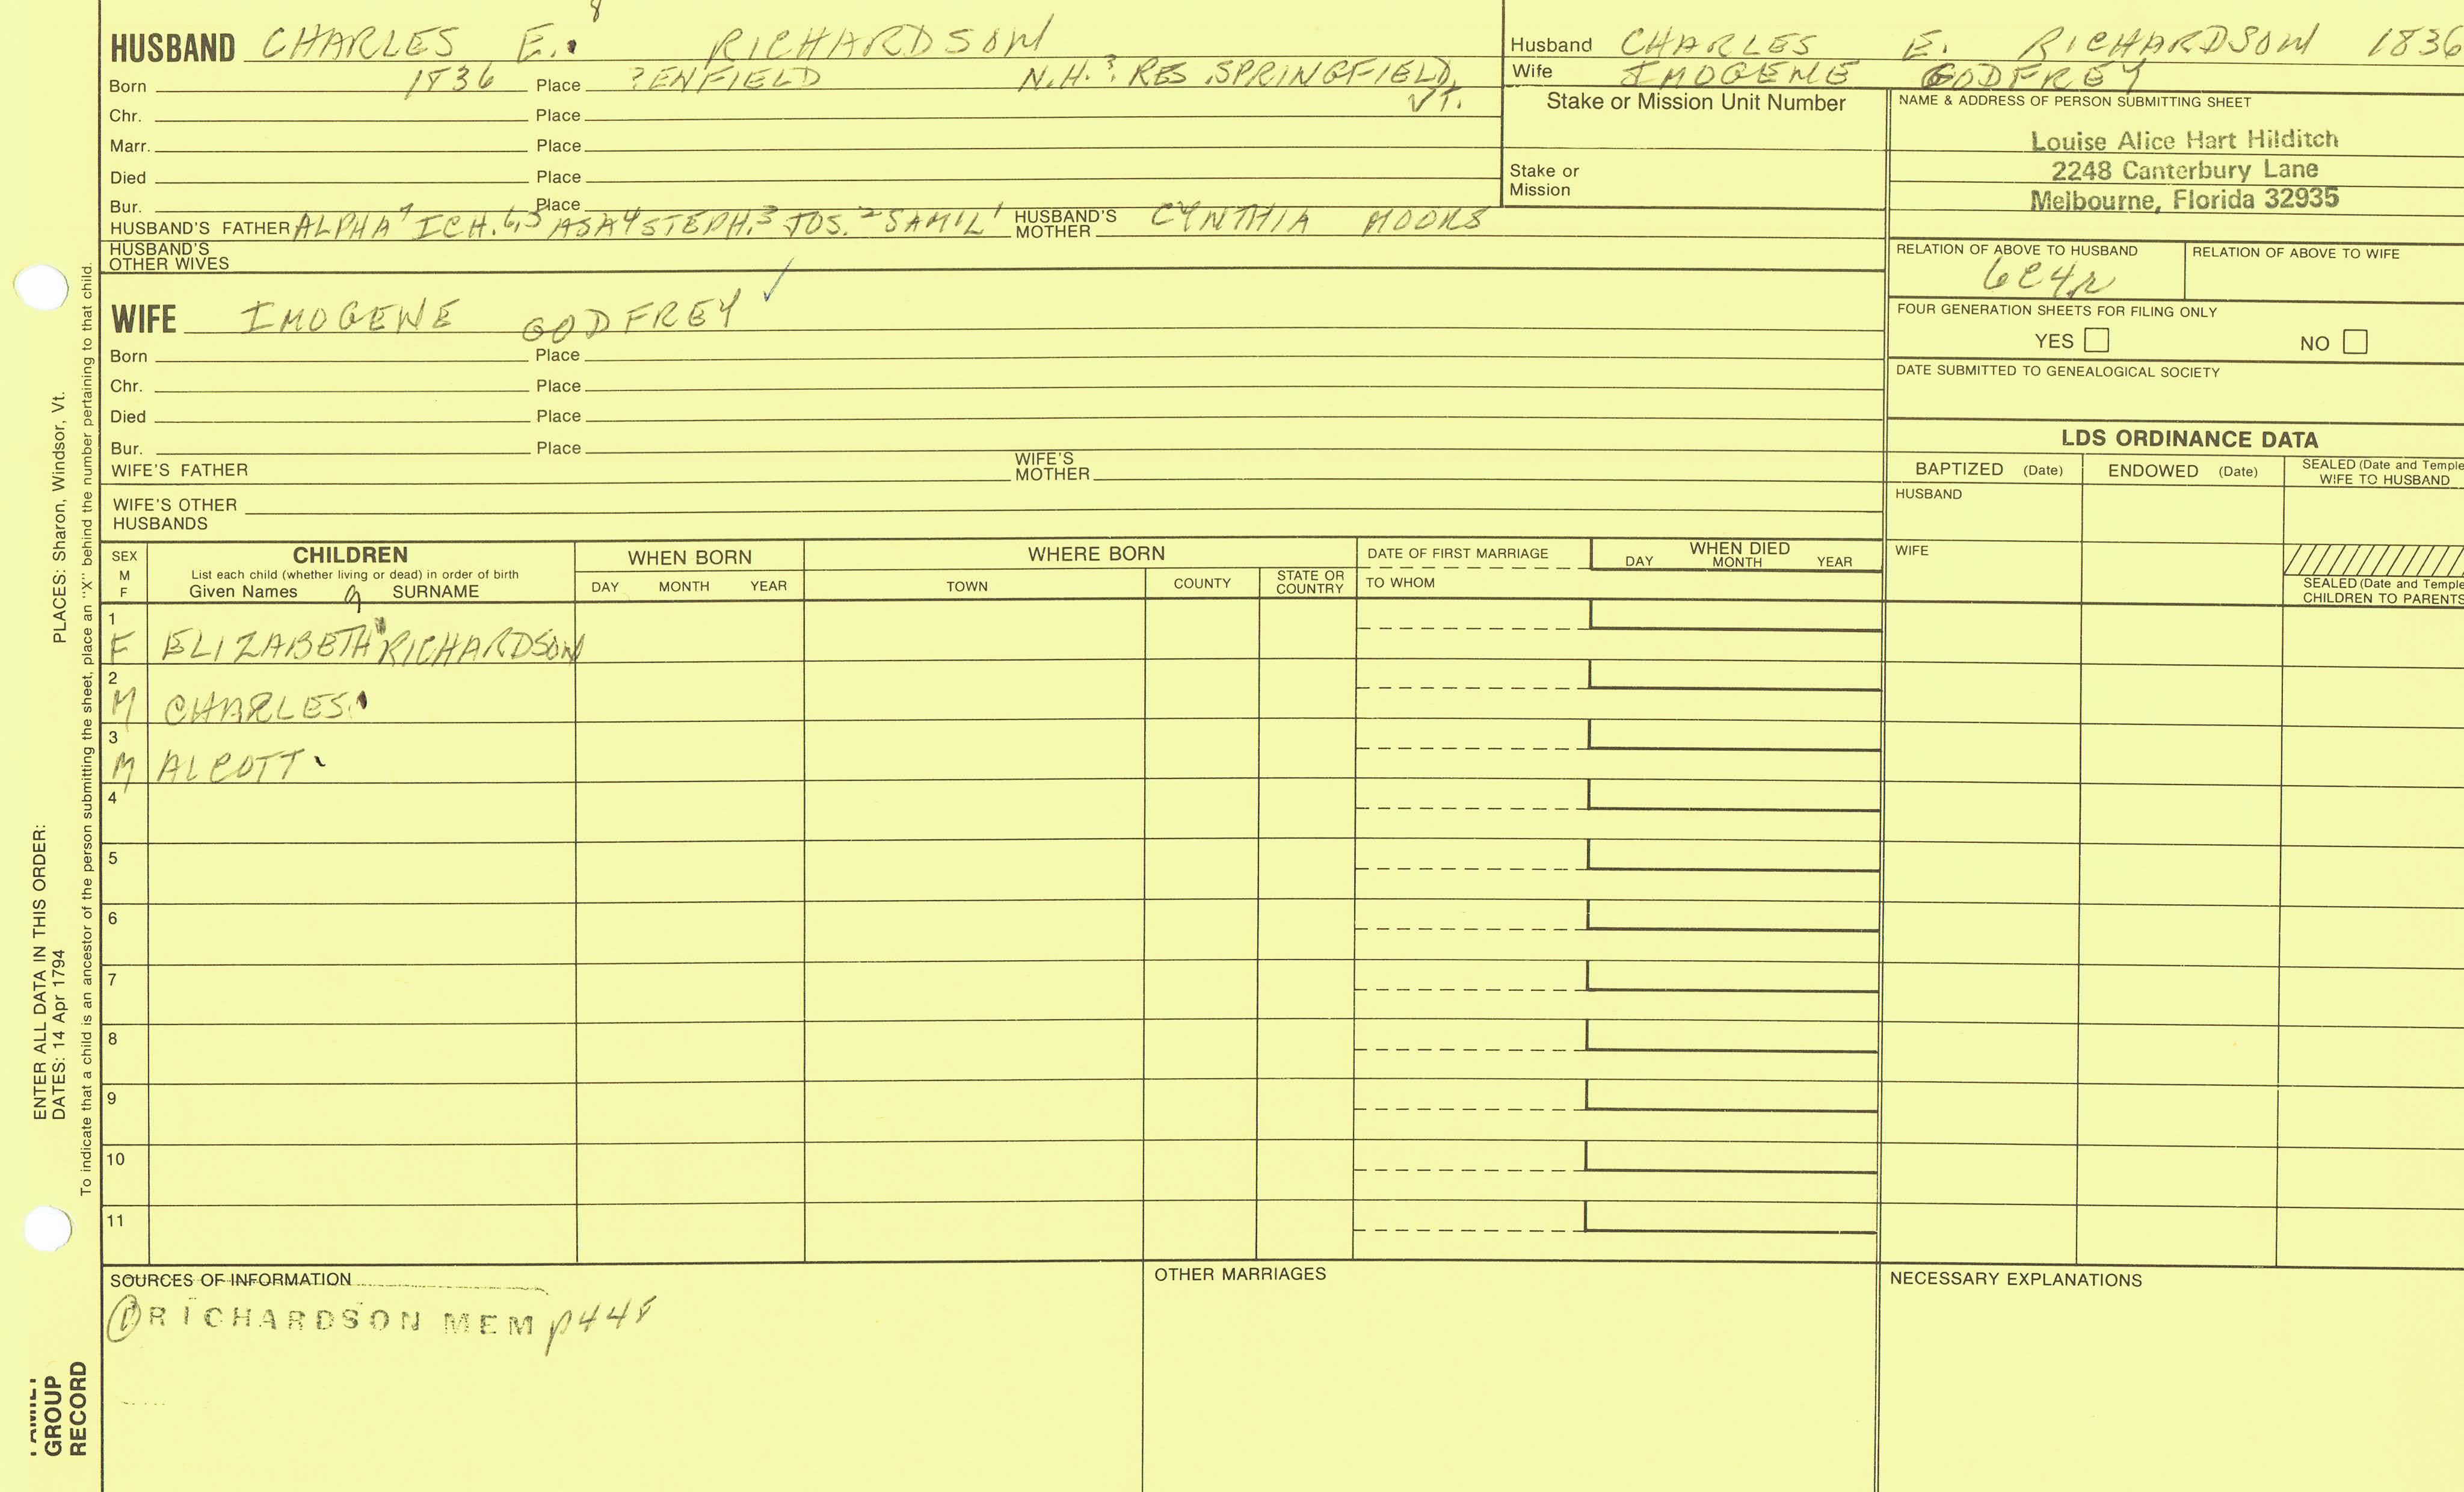 8
HUSBAND CHARLES E. RICHARDSON
Born 1836 Place ?ENFIELD N.H.? RES. SPRINGFIELD, VT.
Chr. Place
Marr. Place
Died Place
Bur. Place
HUSBAND'S FATHER ALPHA 7 ICH. 6,5 ASA 4 STEPH. 3 JOS. 2 SAM'L 1 HUSBAND'S MOTHER CYNTHIA MOORS
HUSBAND'S OTHER WIVES
WIFE IMOGENE GODFREY ✓
Born Place
Chr. Place
Died Place
Bur. Place
WIFE'S FATHER WIFE'S MOTHER
WIFE'S OTHER HUSBANDS
Husband CHARLES E. RICHARDSON 1836
Wife IMOGENE GODFREY
Stake or Mission Unit Number
Stake or Mission
NAME & ADDRESS OF PERSON SUBMITTING SHEET
Louise Alice Hart Hilditch
2248 Canterbury Lane
Melbourne, Florida 32935
RELATION OF ABOVE TO HUSBAND RELATION OF ABOVE TO WIFE
6C4R
FOUR GENERATION SHEETS FOR FILING ONLY
YES NO
DATE SUBMITTED TO GENEALOGICAL SOCIETY
LDS ORDINANCE DATA
BAPTIZED (Date) ENDOWED (Date) SEALED (Date and Temple
WIFE TO HUSBAND
HUSBAND
WIFE
SEALED (Date and Temple
CHILDREN TO PARENTS
SEX M F
CHILDREN
List each child (whether living or dead) in order of birth
Given Names SURNAME
9
WHEN BORN
DAY MONTH YEAR
WHERE BORN
TOWN COUNTY STATE OR COUNTRY
DATE OF FIRST MARRIAGE
TO WHOM
WHEN DIED
DAY MONTH YEAR
1
F ELIZABETH RICHARDSON
2
M CHARLES
3
M ALCOTT
4
5
6
7
8
9
10
11
SOURCES OF INFORMATION
① RICHARDSON MEM p448
OTHER MARRIAGES
NECESSARY EXPLANATIONS
ENTER ALL DATA IN THIS ORDER:
DATES: 14 Apr 1794 PLACES: Sharon, Windsor, Vt.
To indicate that a child is an ancestor of the person submitting the sheet, place an "X" behind the number pertaining to that child.
FAMILY
GROUP
RECORD